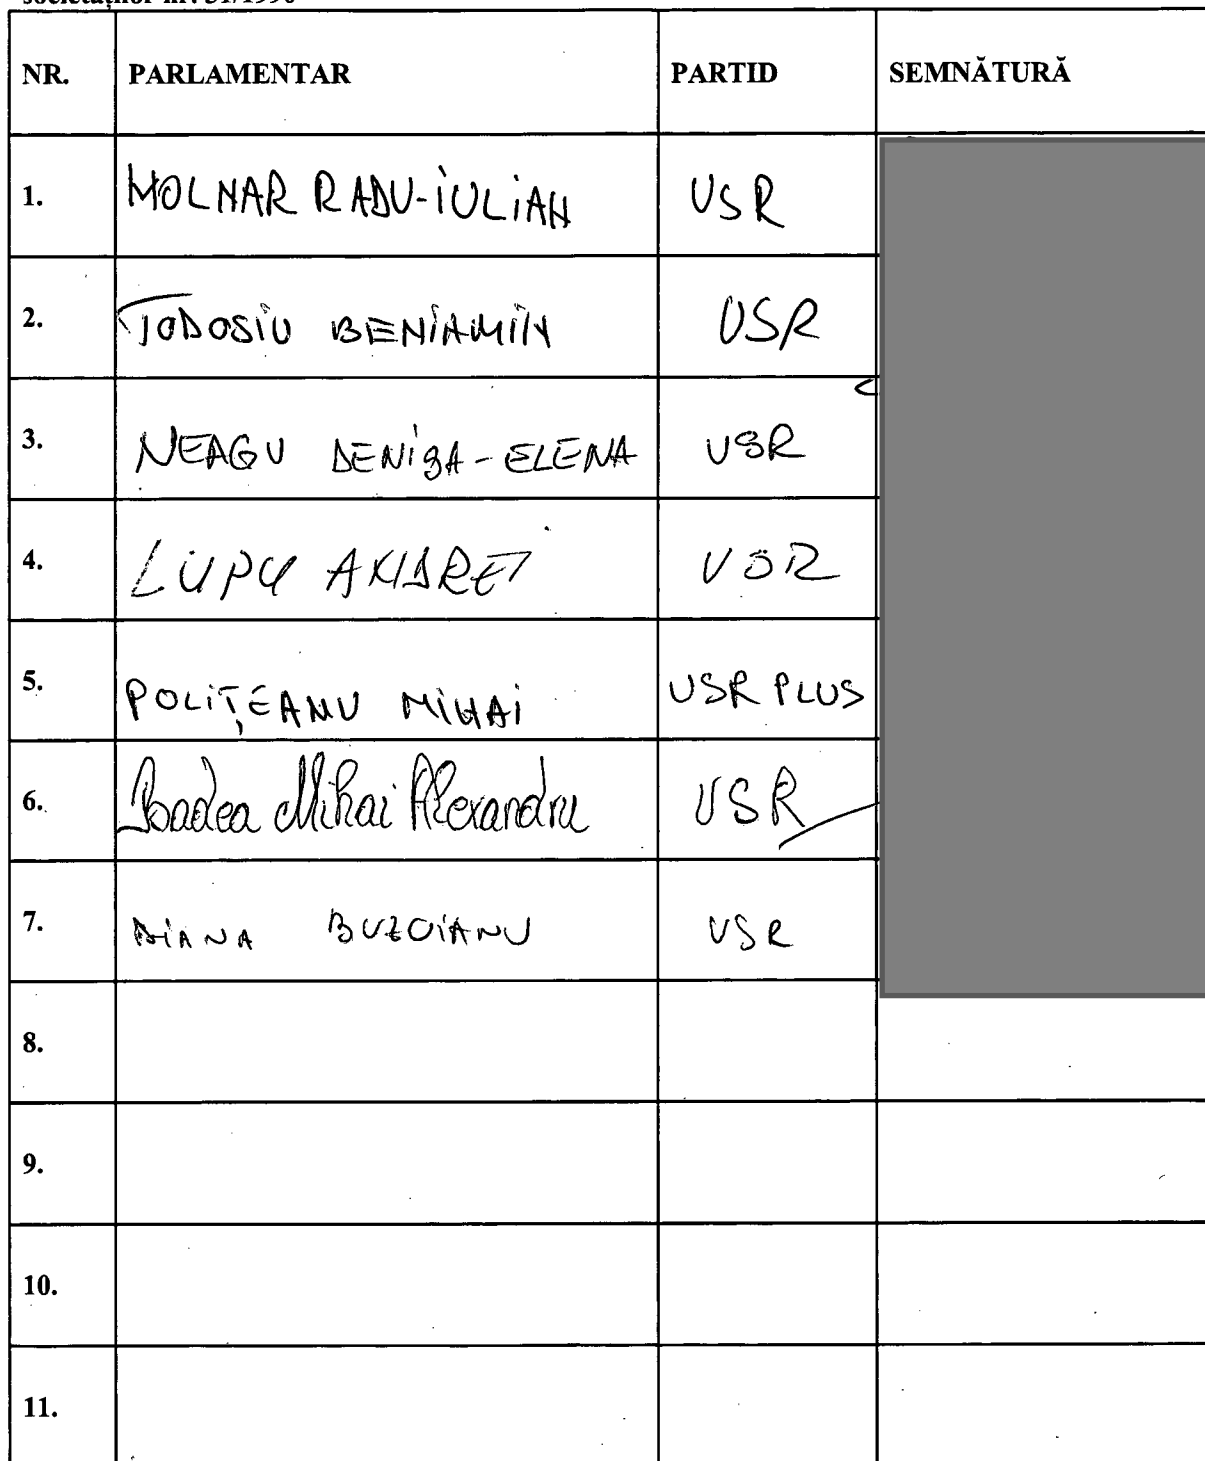 societăților nr. 31/1990
NR. PARLAMENTAR PARTID SEMNĂTURĂ
1. MOLNAR RADU-IULIAN USR
2. TODOSIU BENIAMIN USR
3. NEAGU DENISA-ELENA USR
4. LUPU ANDREI USR
5. POLIȚEANU MIHAI USR PLUS
6. Badea Mihai Alexandru USR
7. DIANA BUZOIANU USR
8.
9.
10.
11.